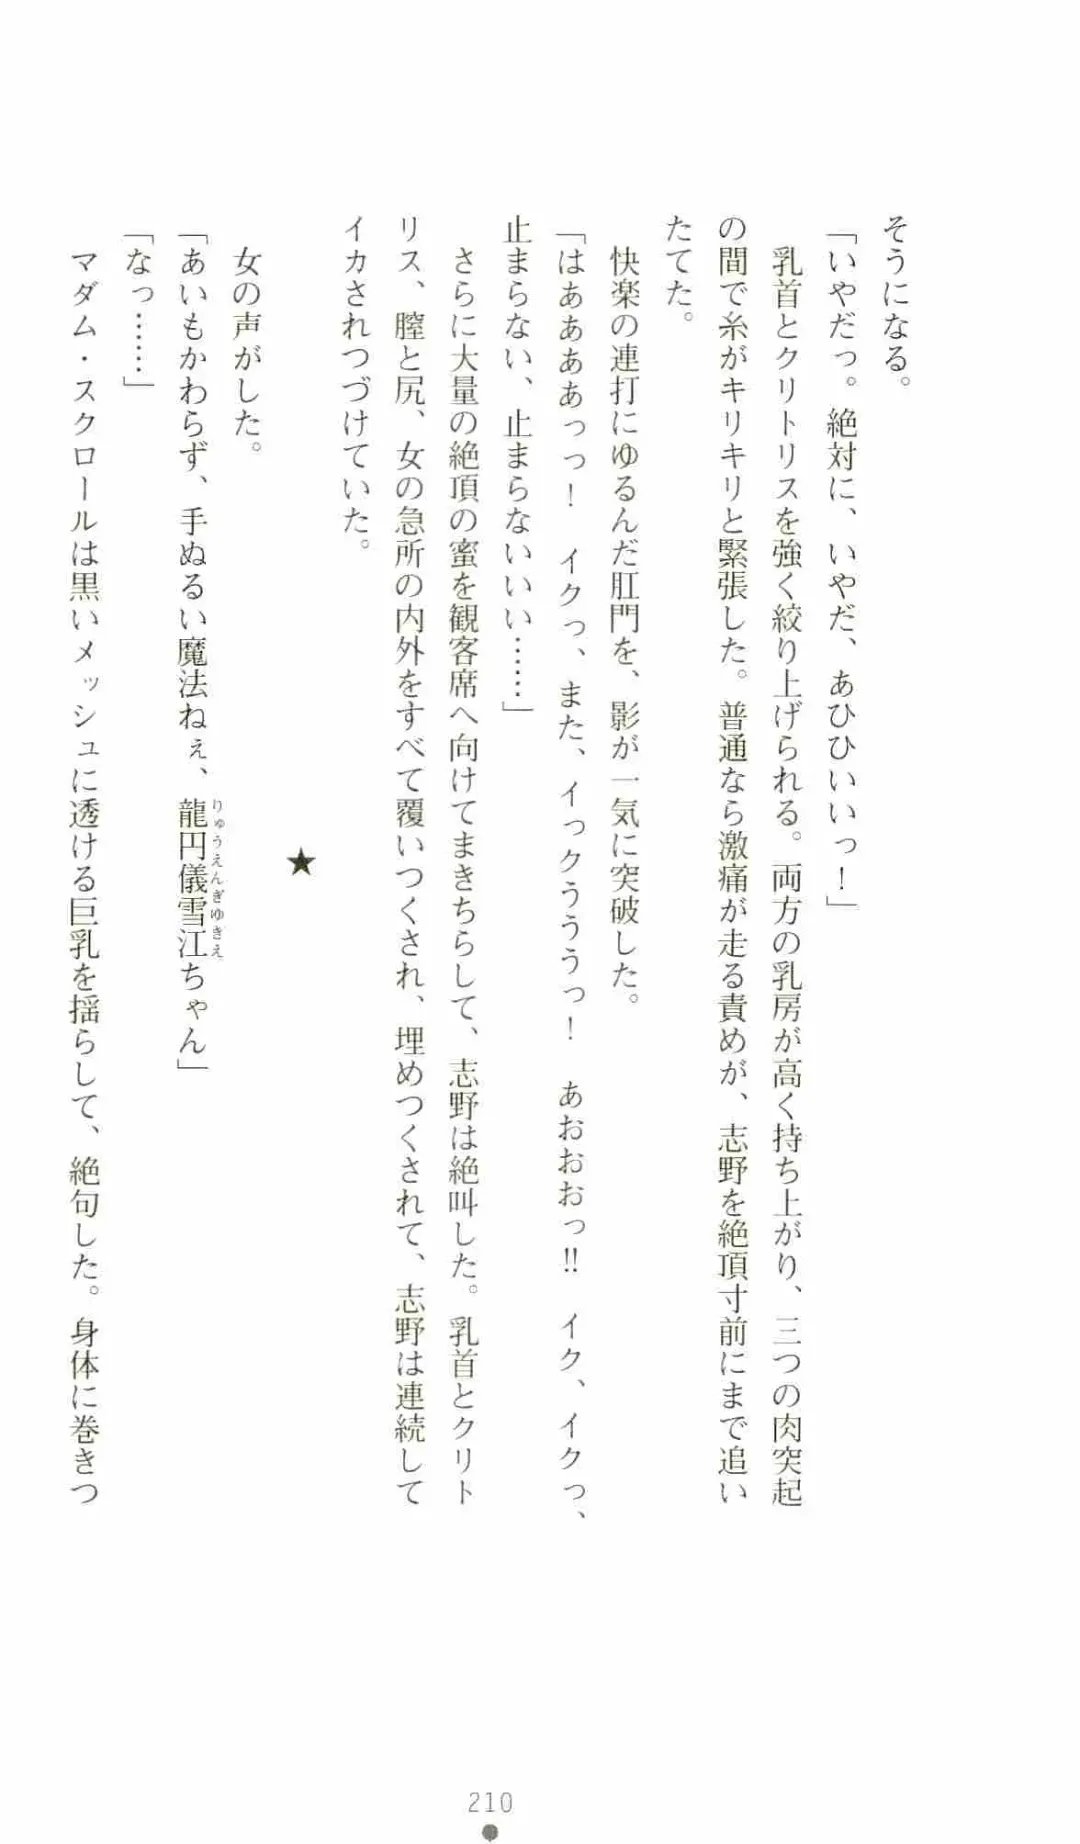 そうになる。
「いやだっ。絶対に、いやだ、あひひいいっ！」
乳首とクリトリスを強く絞り上げられる。両方の乳房が高く持ち上がり、三つの肉突起
の間で糸がキリキリと緊張した。普通なら激痛が走る責めが、志野を絶頂寸前にまで追い
たてた。
快楽の連打にゆるんだ肛門を、影が一気に突破した。
「はああああっっ！　イクっ、また、イっクううっ！　あおおおっ!!　イク、イクっ、
止まらない、止まらないいい……」
さらに大量の絶頂の蜜を観客席へ向けてまきちらして、志野は絶叫した。乳首とクリト
リス、膣と尻、女の急所の内外をすべて覆いつくされ、埋めつくされて、志野は連続して
イカされつづけていた。
★
女の声がした。
「あいもかわらず、手ぬるい魔法ねぇ、龍円儀雪江ちゃん」
りゅうえんぎゆきえ
「なっ……」
マダム・スクロールは黒いメッシュに透ける巨乳を揺らして、絶句した。身体に巻きつ
210